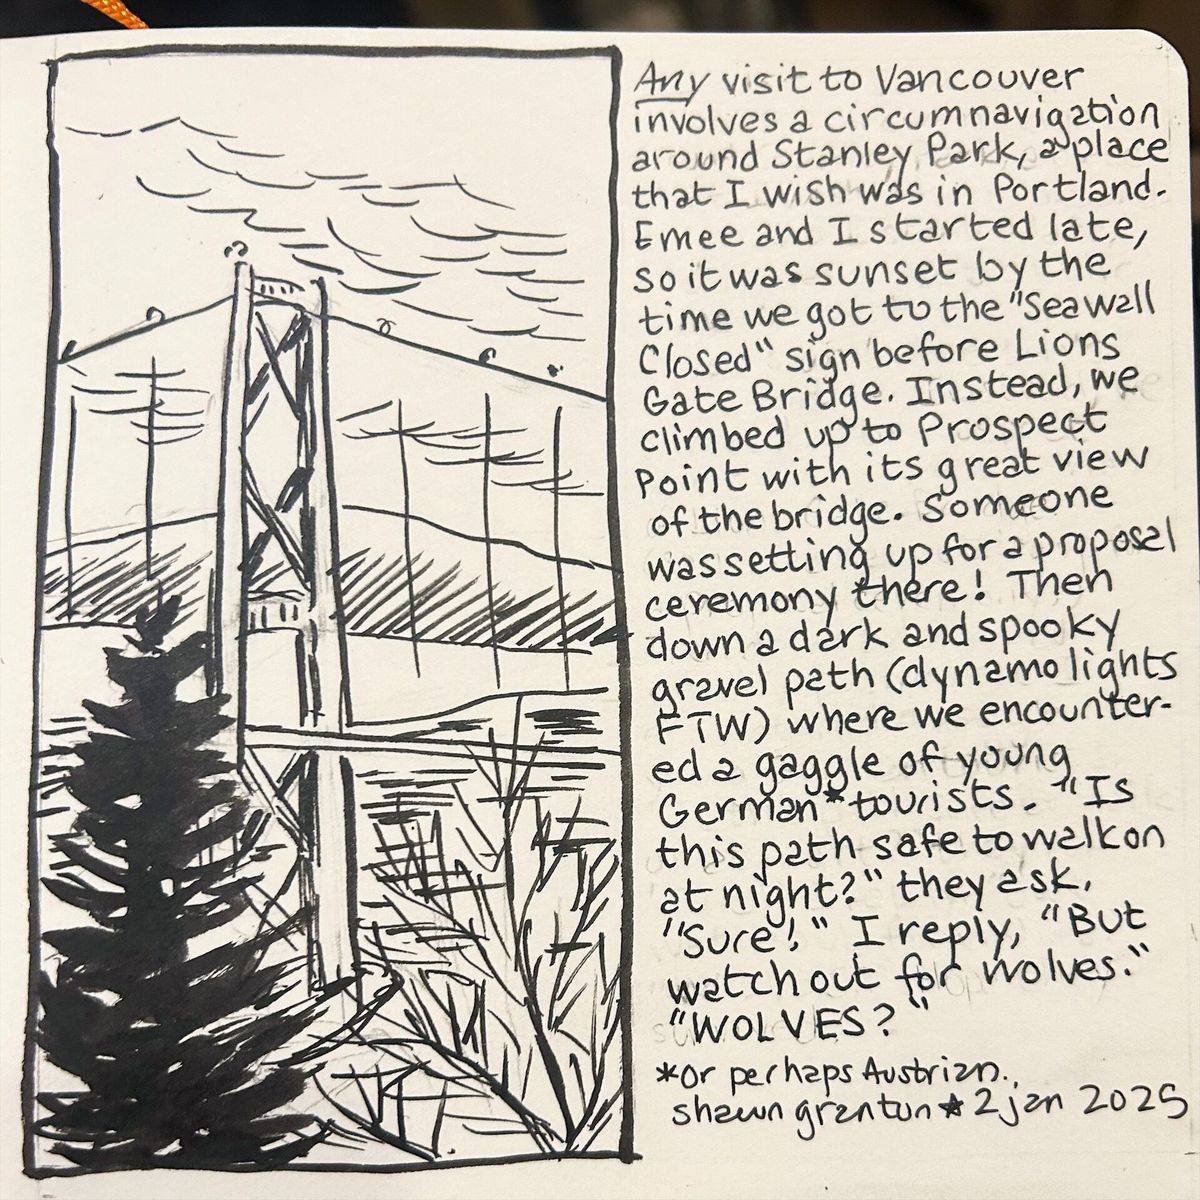 Any visit to Vancouver
involves a circumnavigation
around Stanley Park, a place
that I wish was in Portland.
Emee and I started late,
so it was sunset by the
time we got to the "Seawall
Closed" sign before Lions
Gate Bridge. Instead, we
climbed up to Prospect
Point with its great view
of the bridge. Someone
was setting up for a proposal
ceremony there! Then
down a dark and spooky
gravel path (dynamo lights
FTW) where we encounter-
ed a gaggle of young
German* tourists. "Is
this path safe to walk on
at night?" they ask.
"Sure!" I reply, "But
watch out for wolves."
"WOLVES?"
*or perhaps Austrian.
shawn granton ★ 2 jan 2025